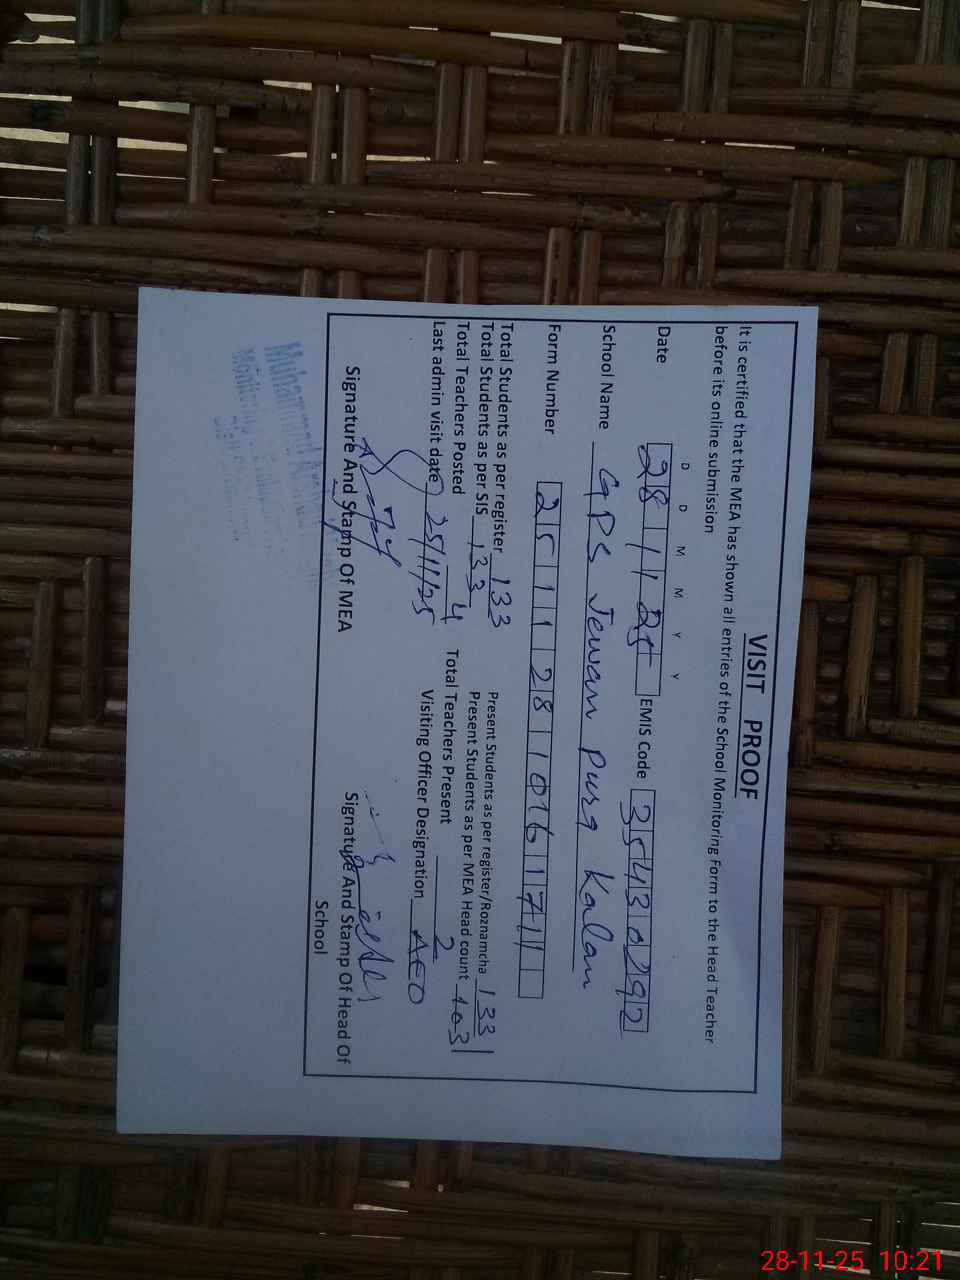 VISIT PROOF
It is certified that the MEA has shown all entries of the School Monitoring Form to the Head Teacher
before its online submission
D D M M Y Y
Date 28 11 25 EMIS Code 35430292
School Name GPS Jewan Pura Kalan
Form Number 2511281016171
Total Students as per register 133 Present Students as per register/Roznamcha 133
Total Students as per SIS 133 Present Students as per MEA Head count 103
Total Teachers Posted 4 Total Teachers Present 2
Last admin visit date 25/11/25 Visiting Officer Designation AEO
Signature And Stamp Of MEA Signature And Stamp Of Head Of
School
Muhammad
28-11-25 10:21